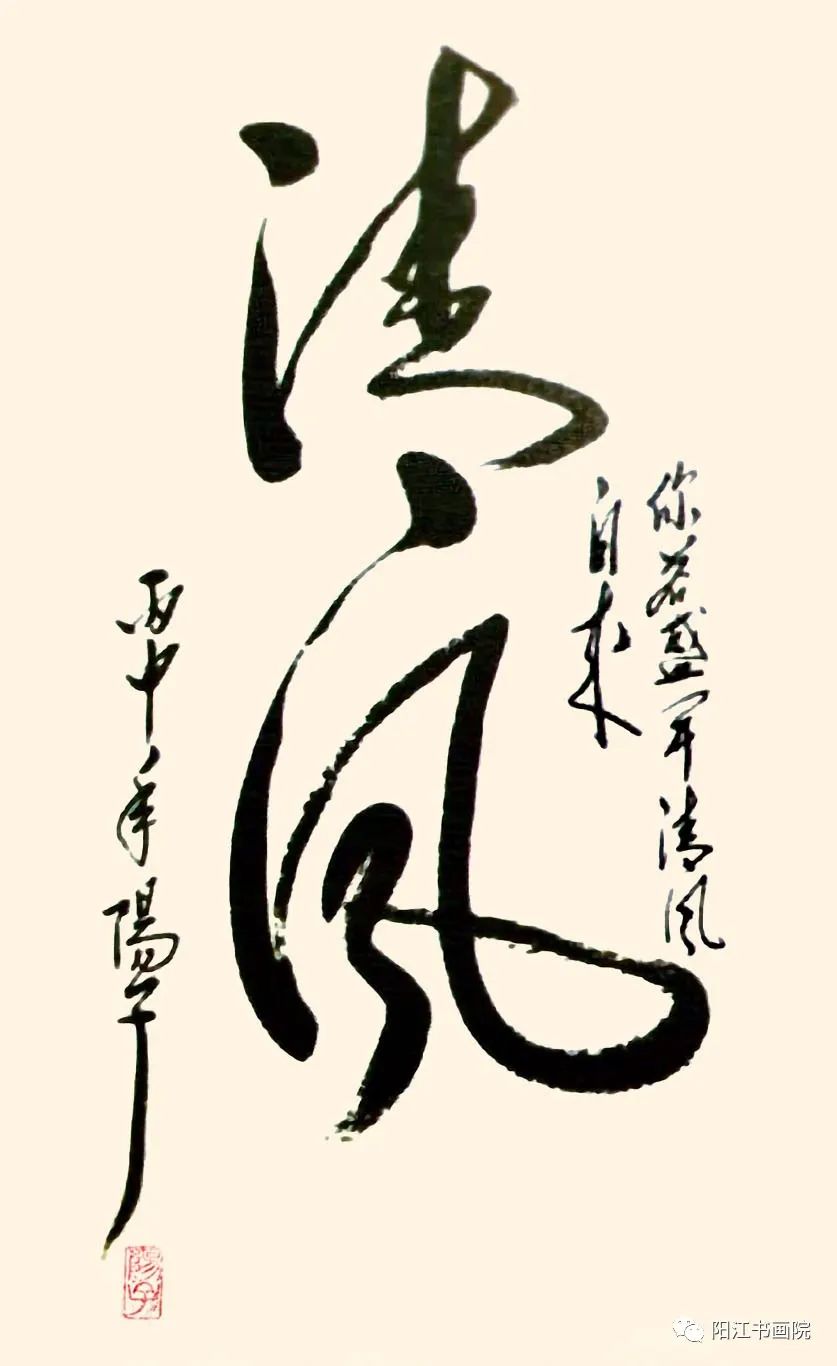 清风
你若盛开清风
自来
丙申年陽子
陽子
阳江书画院